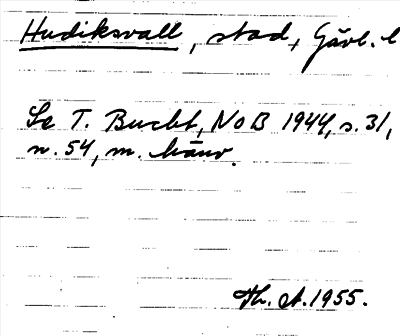 Hudiksvall, stad, Gävl. l
Se T. Bucht, NoB 1944, s. 31,
n. 54, m. hänv.
Th. A. 1955.